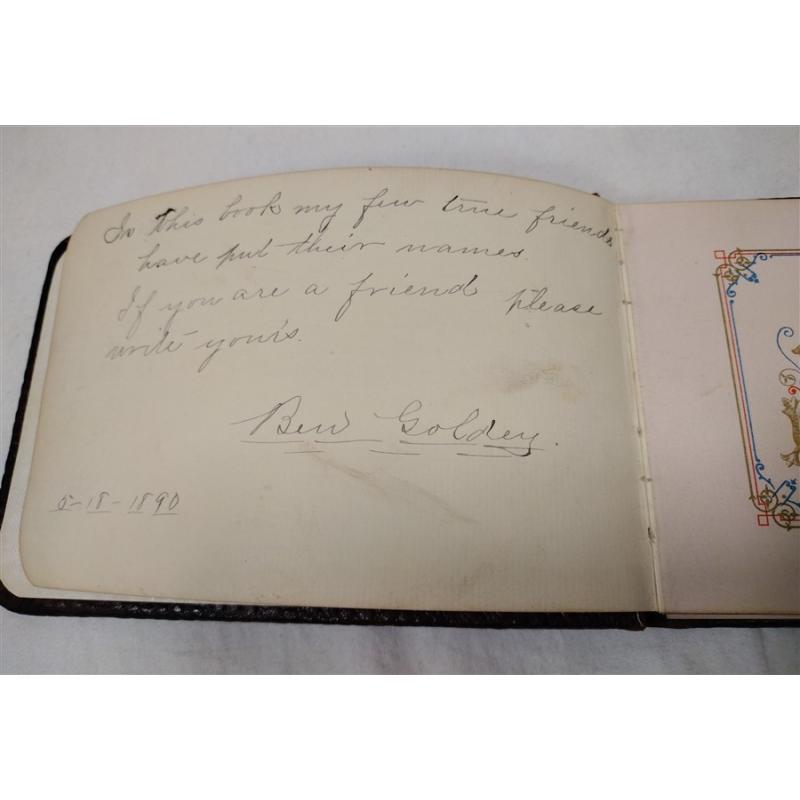 In this book my few true friends
have put their names.
If you are a friend please
write your's.
Ben Goldey.
5-18-1890